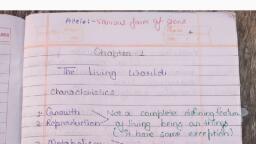 Allele:- various form of gene
Chapter - 1
The Living World
Characteristics
1. Growth Not a complete defining feature
2. Reproduction of living being as things
(It have some exception)
3. Metabolism